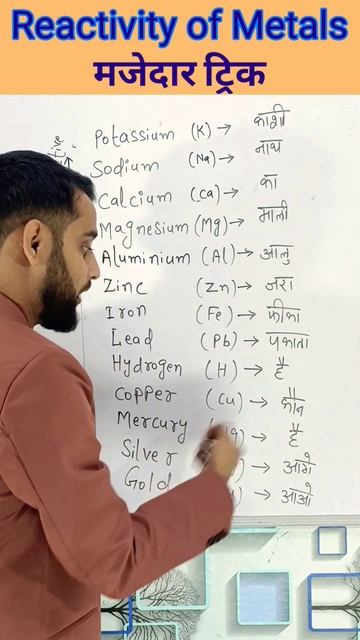 Reactivity of Metals
मजेदार ट्रिक
Potassium (K) → काशी
Sodium (Na) → नाथ
Calcium (Ca) → का
Magnesium (Mg) → माली
Aluminium (Al) → आलु
Zinc (Zn) → जरा
Iron (Fe) → फीका
Lead (Pb) → पकाता
Hydrogen (H) → है
Copper (Cu) → कौन
Mercury → है
Silver → आगे
Gold → आओ